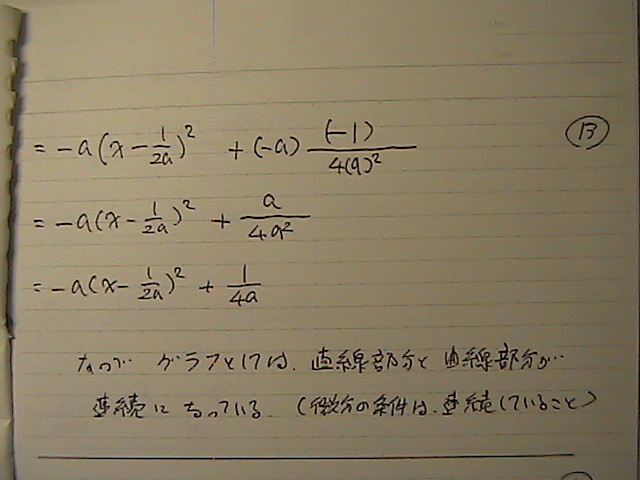 ⑬
= -a(x - 1/2a)² + (-a) (-1)/4(a)²
= -a(x - 1/2a)² + a/4a²
= -a(x - 1/2a)² + 1/4a
なので グラフとしては、直線部分と 曲線部分が…
連続になっている. (微分の条件は、連続していること)